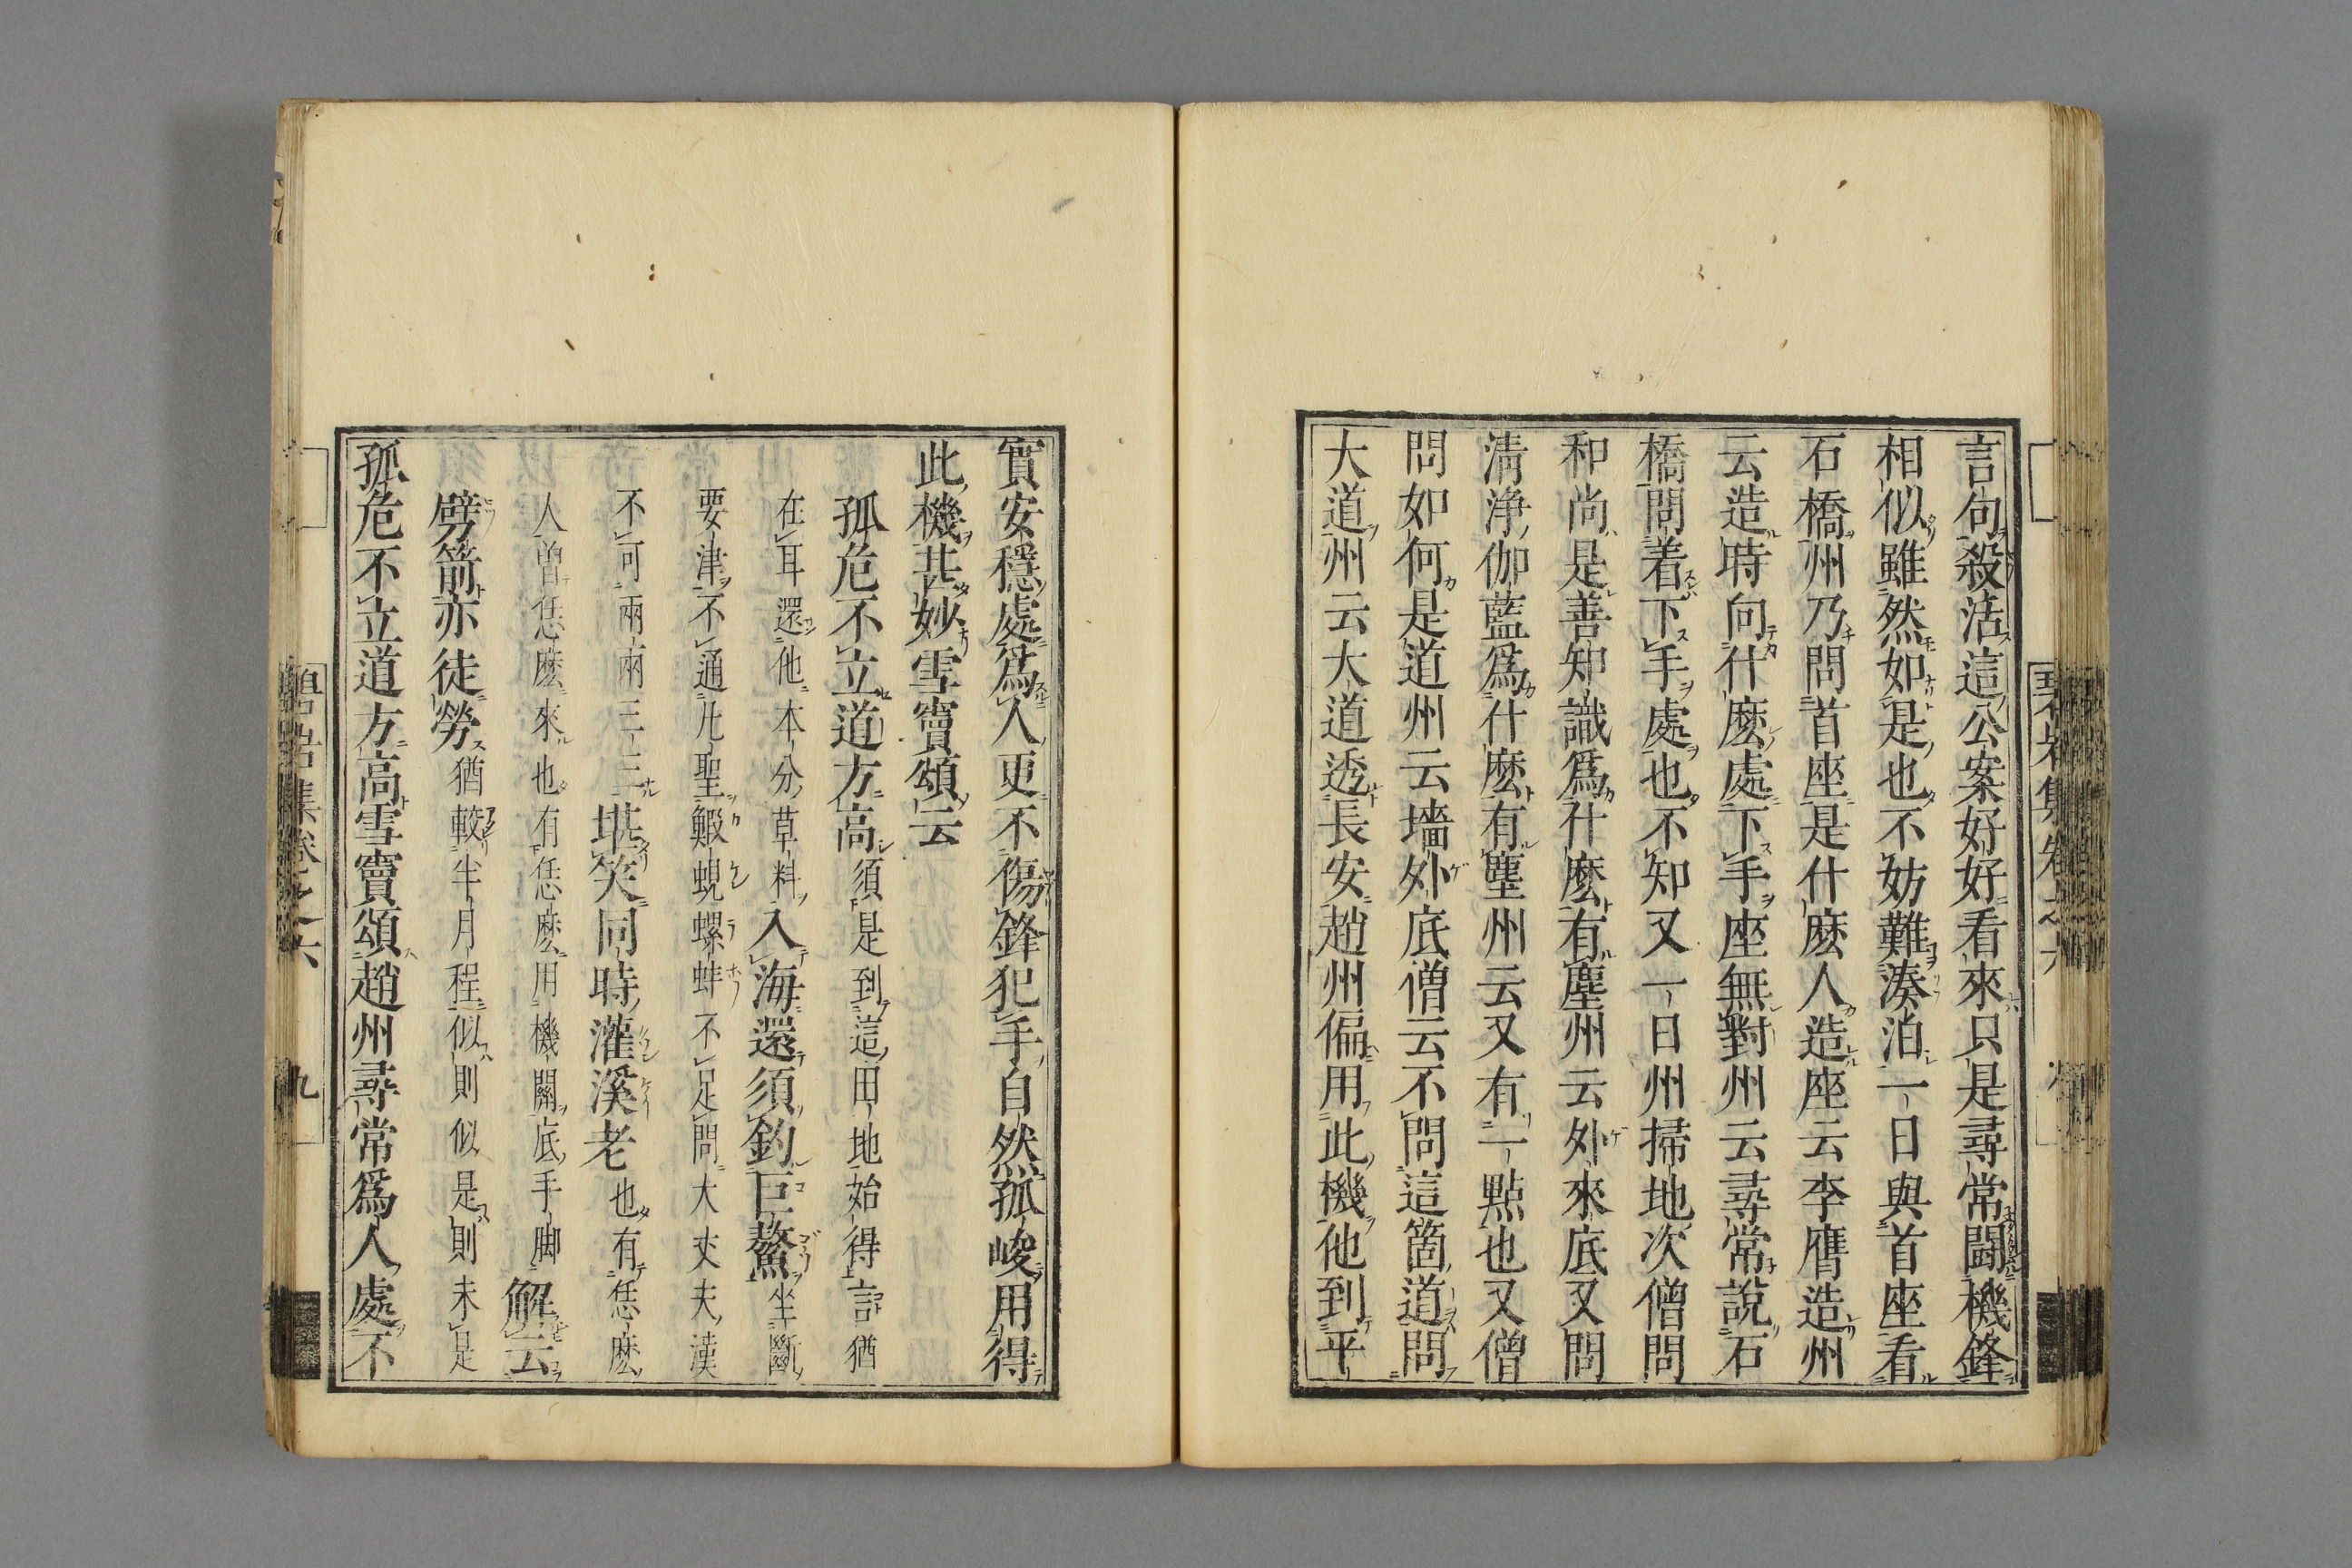 言句殺活這公案好好看來只是尋常鬪機鋒
相似雖然如是也不妨難湊泊一日與首座看
石橋州乃問首座是什麽人造座云李膺造州
云造時向什麽處下手座無對州云尋常說石
橋問着下手處也不知又一日州掃地次僧問
和尚是善知識爲什麽有塵州云外來底又問
淸淨伽藍爲什麽有塵州云又有一點也又僧
問如何是道州云墻外底僧云不問這箇道問
大道州云大道透長安趙州偏用此機他到平
實安穩處爲人更不傷鋒犯手自然孤峻用得
此機甚妙雪竇頌云
孤危不立道方高須是到這田地始得言猶
在耳還他本分草料入海還須釣巨鰲坐斷
要津不通凡聖鰕蜆螺蚌不足問大丈夫漢
不可兩兩三三堪笑同時灌溪老也有恁麽
人曾恁麽來也有恁麽用機關底手脚解云
劈箭亦徒勞猶較半月程似則似是則未是
孤危不立道方高雪竇頌趙州尋常爲人處不
碧岩集卷之六
九